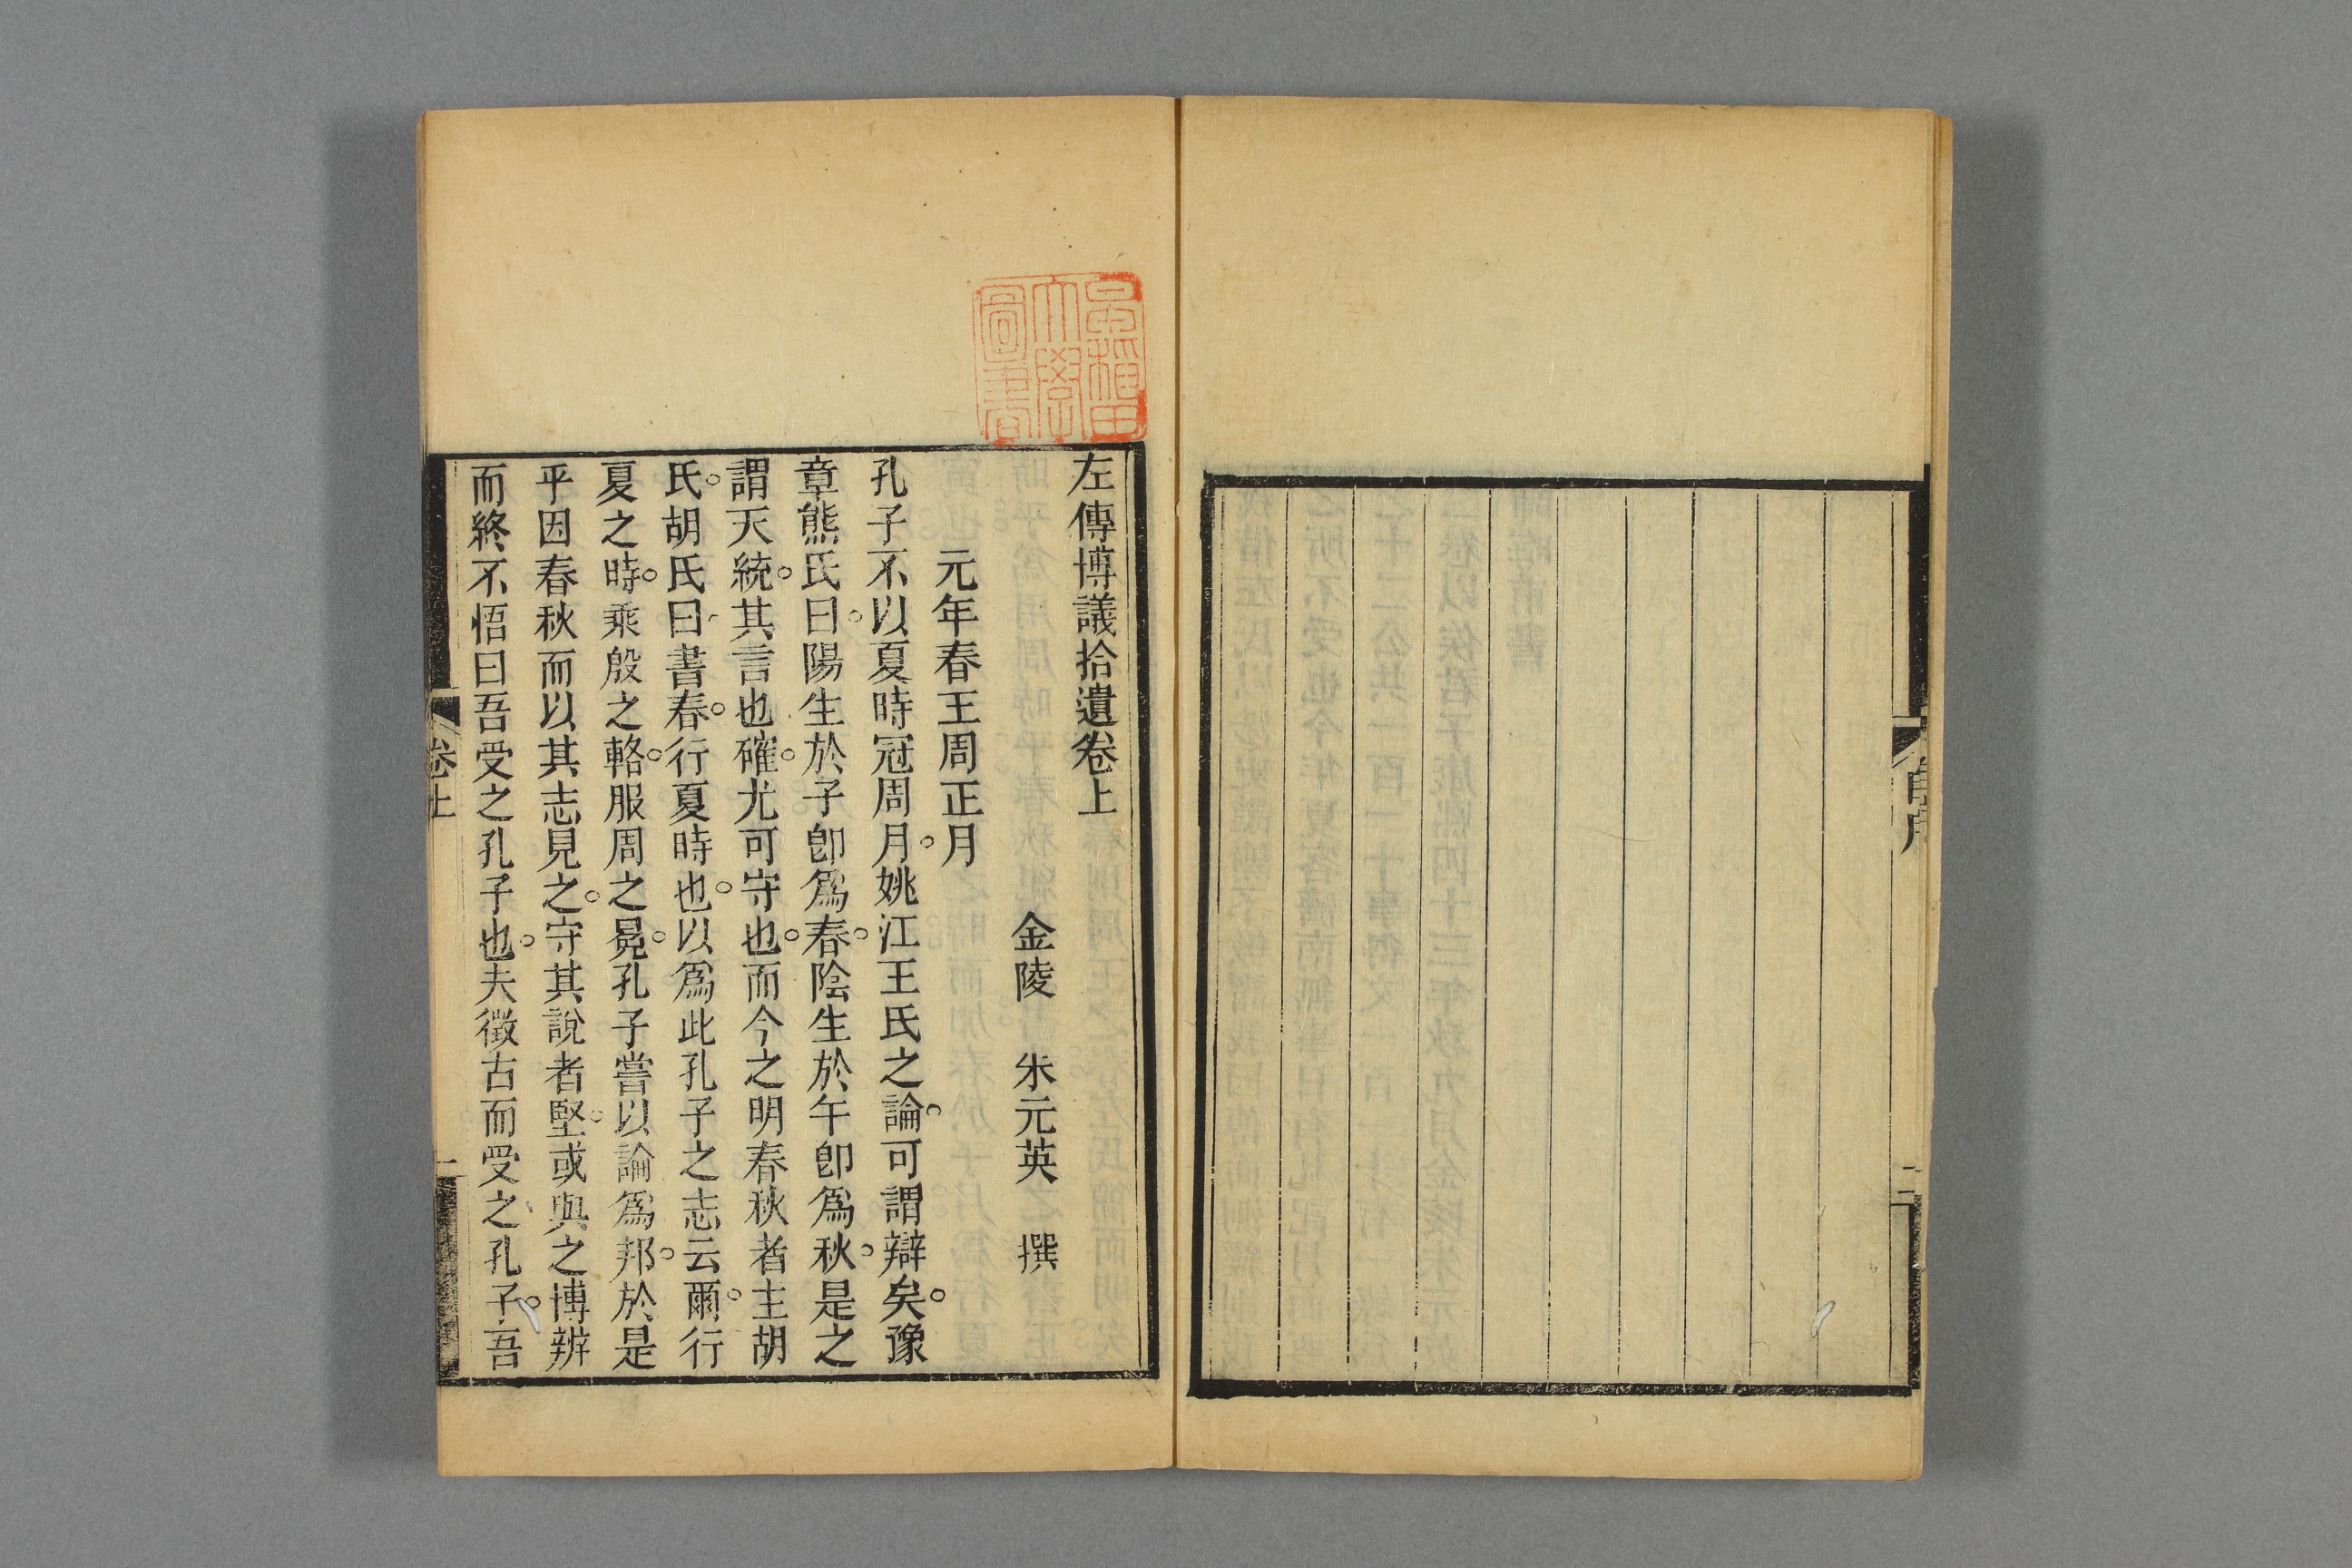 自序
二
早稲田
大學
圖書
左傳博議拾遺卷上
金陵 朱元英 撰
元年春王周正月
孔子不以夏時冠周月姚江王氏之論可謂辯矣豫
章熊氏曰陽生於子卽爲春陰生於午卽爲秋是之
謂天統其言也確尤可守也而今之明春秋者主胡
氏胡氏曰書春行夏時也以爲此孔子之志云爾行
夏之時乘殷之輅服周之冕孔子嘗以論爲邦於是
乎因春秋而以其志見之守其說者堅或與之博辨
而終不悟曰吾受之孔子也夫徵古而受之孔子吾
卷上
一